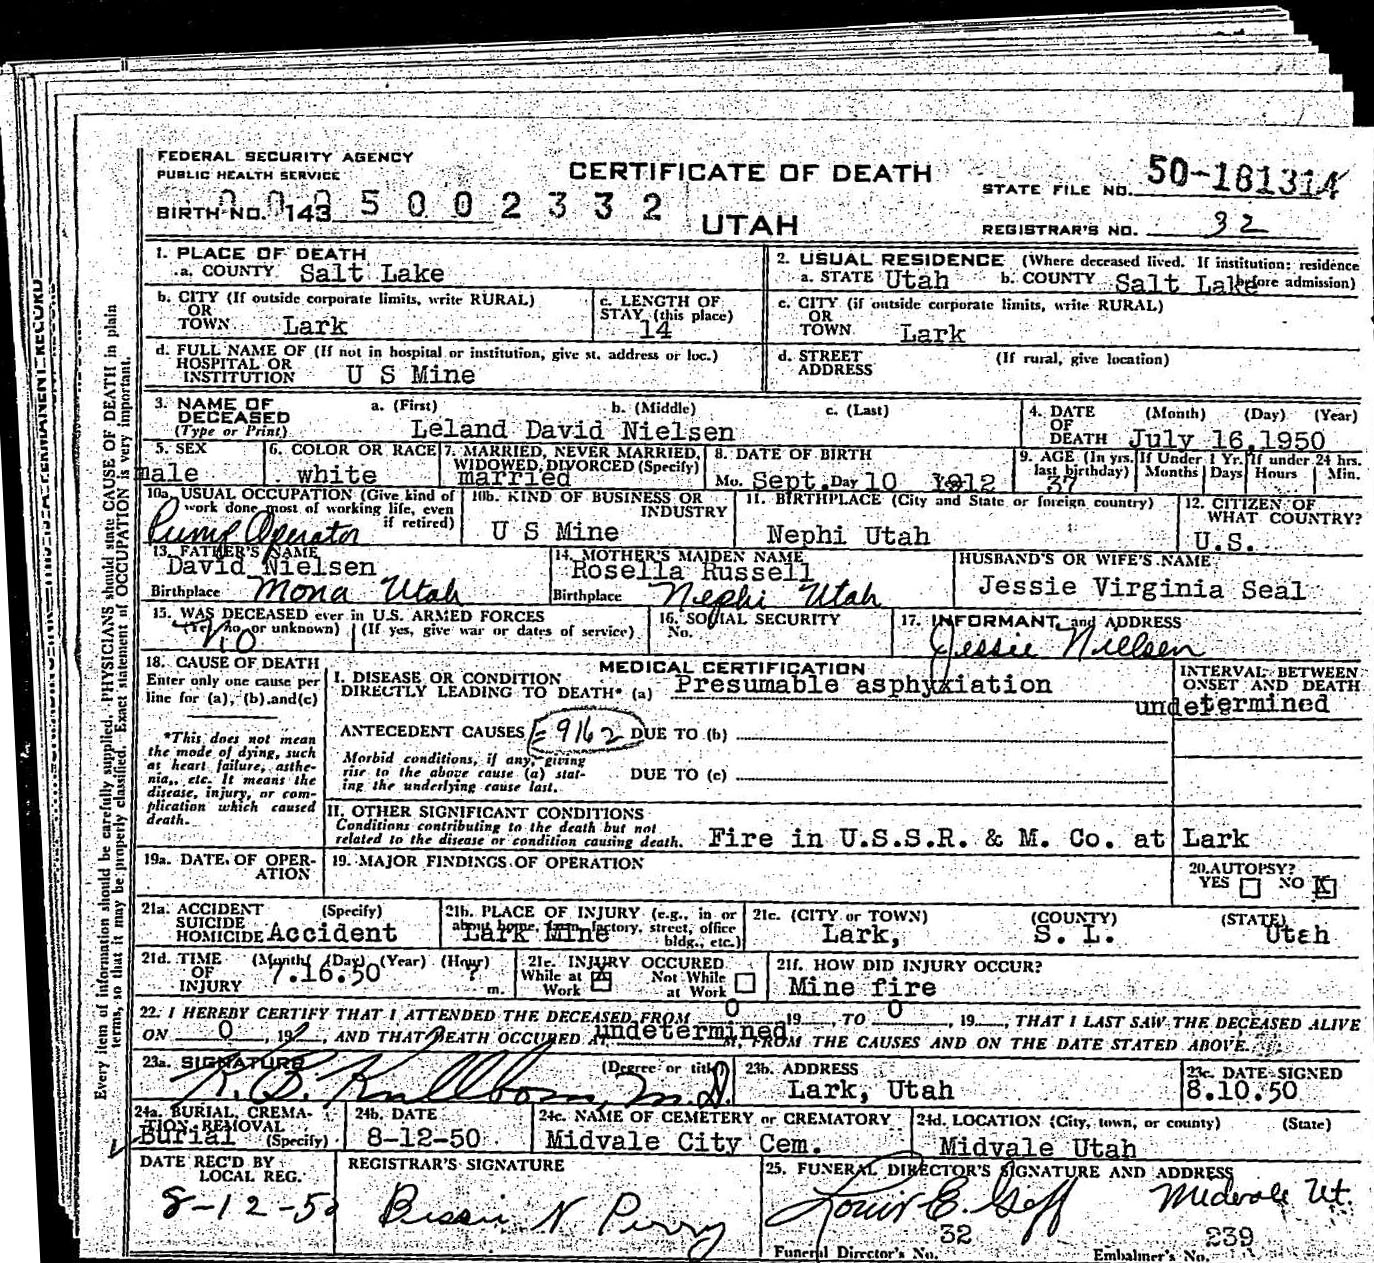 FEDERAL SECURITY AGENCY
PUBLIC HEALTH SERVICE
CERTIFICATE OF DEATH
STATE FILE NO. 50-181314
BIRTH NO. 143 5002332
UTAH
REGISTRAR'S NO. 32
1. PLACE OF DEATH
a. COUNTY Salt Lake
2. USUAL RESIDENCE (Where deceased lived. If institution: residence before admission)
a. STATE Utah b. COUNTY Salt Lake
b. CITY (If outside corporate limits, write RURAL)
OR
TOWN Lark
c. LENGTH OF
STAY (this place)
14
c. CITY (if outside corporate limits, write RURAL)
OR
TOWN Lark
d. FULL NAME OF (If not in hospital or institution, give st. address or loc.)
HOSPITAL OR
INSTITUTION U S Mine
d. STREET (If rural, give location)
ADDRESS
3. NAME OF
DECEASED
(Type or Print)
a. (First) b. (Middle) c. (Last)
Leland David Nielsen
4. DATE (Month) (Day) (Year)
OF
DEATH July 16,1950
5. SEX
male
6. COLOR OR RACE
white
7. MARRIED, NEVER MARRIED,
WIDOWED, DIVORCED (Specify)
married
8. DATE OF BIRTH
Mo. Sept. Day 10 1912
9. AGE (In yrs. last birthday)
37
If Under 1 Yr.
Months Days
If under 24 hrs.
Hours Min.
10a. USUAL OCCUPATION (Give kind of
work done most of working life, even
if retired)
Pump Operator
10b. KIND OF BUSINESS OR
INDUSTRY
U S Mine
11. BIRTHPLACE (City and State or foreign country)
Nephi Utah
12. CITIZEN OF
WHAT COUNTRY?
U.S.
13. FATHER'S NAME
David Nielsen
Birthplace Mona Utah
14. MOTHER'S MAIDEN NAME
Rosella Russell
Birthplace Nephi Utah
HUSBAND'S OR WIFE'S NAME
Jessie Virginia Seal
15. WAS DECEASED ever in U.S. ARMED FORCES
(Yes, no, or unknown) (If yes, give war or dates of service)
No
16. SOCIAL SECURITY
No.
17. INFORMANT and ADDRESS
Jessie Nielsen
18. CAUSE OF DEATH
Enter only one cause per
line for (a), (b), and (c)
*This does not mean
the mode of dying, such
as heart failure, asthe-
nia, etc. It means the
disease, injury, or com-
plication which caused
death.
MEDICAL CERTIFICATION
I. DISEASE OR CONDITION
DIRECTLY LEADING TO DEATH* (a) Presumable asphyxiation
INTERVAL BETWEEN
ONSET AND DEATH
undetermined
ANTECEDENT CAUSES E 9162 DUE TO (b)
Morbid conditions, if any, giving
rise to the above cause (a) stat-
ing the underlying cause last.
DUE TO (c)
II. OTHER SIGNIFICANT CONDITIONS
Conditions contributing to the death but not
related to the disease or condition causing death. Fire in U.S.S.R. & M. Co. at Lark
19a. DATE OF OPER-
ATION
19. MAJOR FINDINGS OF OPERATION
20. AUTOPSY?
YES NO X
21a. ACCIDENT (Specify)
SUICIDE
HOMICIDE Accident
21b. PLACE OF INJURY (e.g., in or
about home, farm, factory, street, office
bldg., etc.)
Lark Mine
21c. (CITY or TOWN) (COUNTY) (STATE)
Lark, S. L. Utah
21d. TIME (Month) (Day) (Year) (Hour)
OF
INJURY 7.16.50 ? m.
21e. INJURY OCCURED
While at Work X Not While at Work
21f. HOW DID INJURY OCCUR?
Mine fire
22. I HEREBY CERTIFY THAT I ATTENDED THE DECEASED FROM 0 19, TO 0, 19, THAT I LAST SAW THE DECEASED ALIVE
ON 0, 19, AND THAT DEATH OCCURED AT undetermined M, FROM THE CAUSES AND ON THE DATE STATED ABOVE.
23a. SIGNATURE (Degree or title)
M.D.
23b. ADDRESS
Lark, Utah
23c. DATE SIGNED
8.10.50
24a. BURIAL, CREMA-
TION, REMOVAL
Burial (Specify)
24b. DATE
8-12-50
24c. NAME OF CEMETERY or CREMATORY
Midvale City Cem.
24d. LOCATION (City, town, or county) (State)
Midvale Utah
DATE REC'D BY
LOCAL REG.
8-12-50
REGISTRAR'S SIGNATURE
Bessie N Perry
25. FUNERAL DIRECTOR'S SIGNATURE AND ADDRESS
Louis E. Goff Midvale Ut.
32 239
Funeral Director's No. Embalmer's No.
Every item of information should be carefully supplied. PHYSICIANS should state CAUSE OF DEATH in plain
terms, so that it may be properly classified. Exact statement of OCCUPATION is very important.